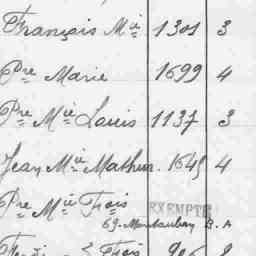 François Mie 1301 3
Pre Marie 1699 4
Pre Mie Louis 1137 3
Jean Mie Mathur. 1645 4
Pre Mie Frois EXEMPTÉ
69. Montauban B. A